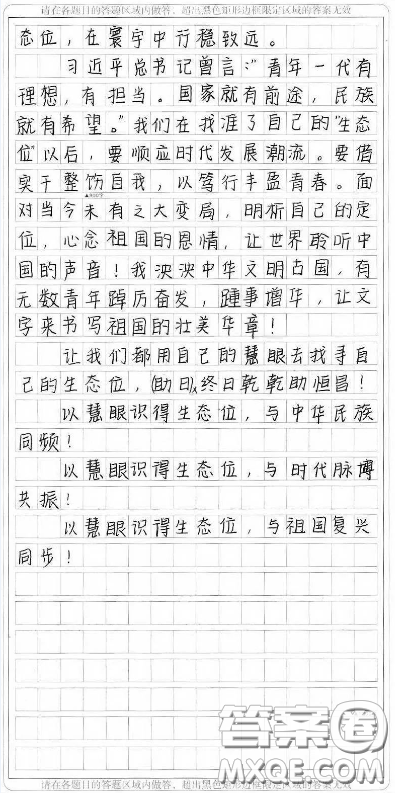 请在各题目的答题区域内做答，超出黑色矩形边框限定区域的答案无效
态位，在寰宇中行稳致远。
习近平总书记曾言："青年一代有
理想，有担当。国家就有前途，民族
就有希望。"我们在找准了自己的"生态
位"以后，要顺应时代发展潮流。要借
实干整饬自我，以笃行丰盈青春。面
对当今未有之大变局，明析自己的定
位，心念祖国的恩情，让世界聆听中
国的声音！我泱泱中华文明古国，有
无数青年踔厉奋发，踵事增华，让文
字来书写祖国的壮美华章！
让我们都用自己的慧眼去找寻自
己的生态位，(助日)终日乾乾助恒昌！
以慧眼识得生态位，与中华民族
同频！
以慧眼识得生态位，与时代脉搏
共振！
以慧眼识得生态位，与祖国复兴
同步！
答案卷
MXQE.COM
请在各题目的答题区域内做答，超出黑色矩形边框限定区域的答案无效